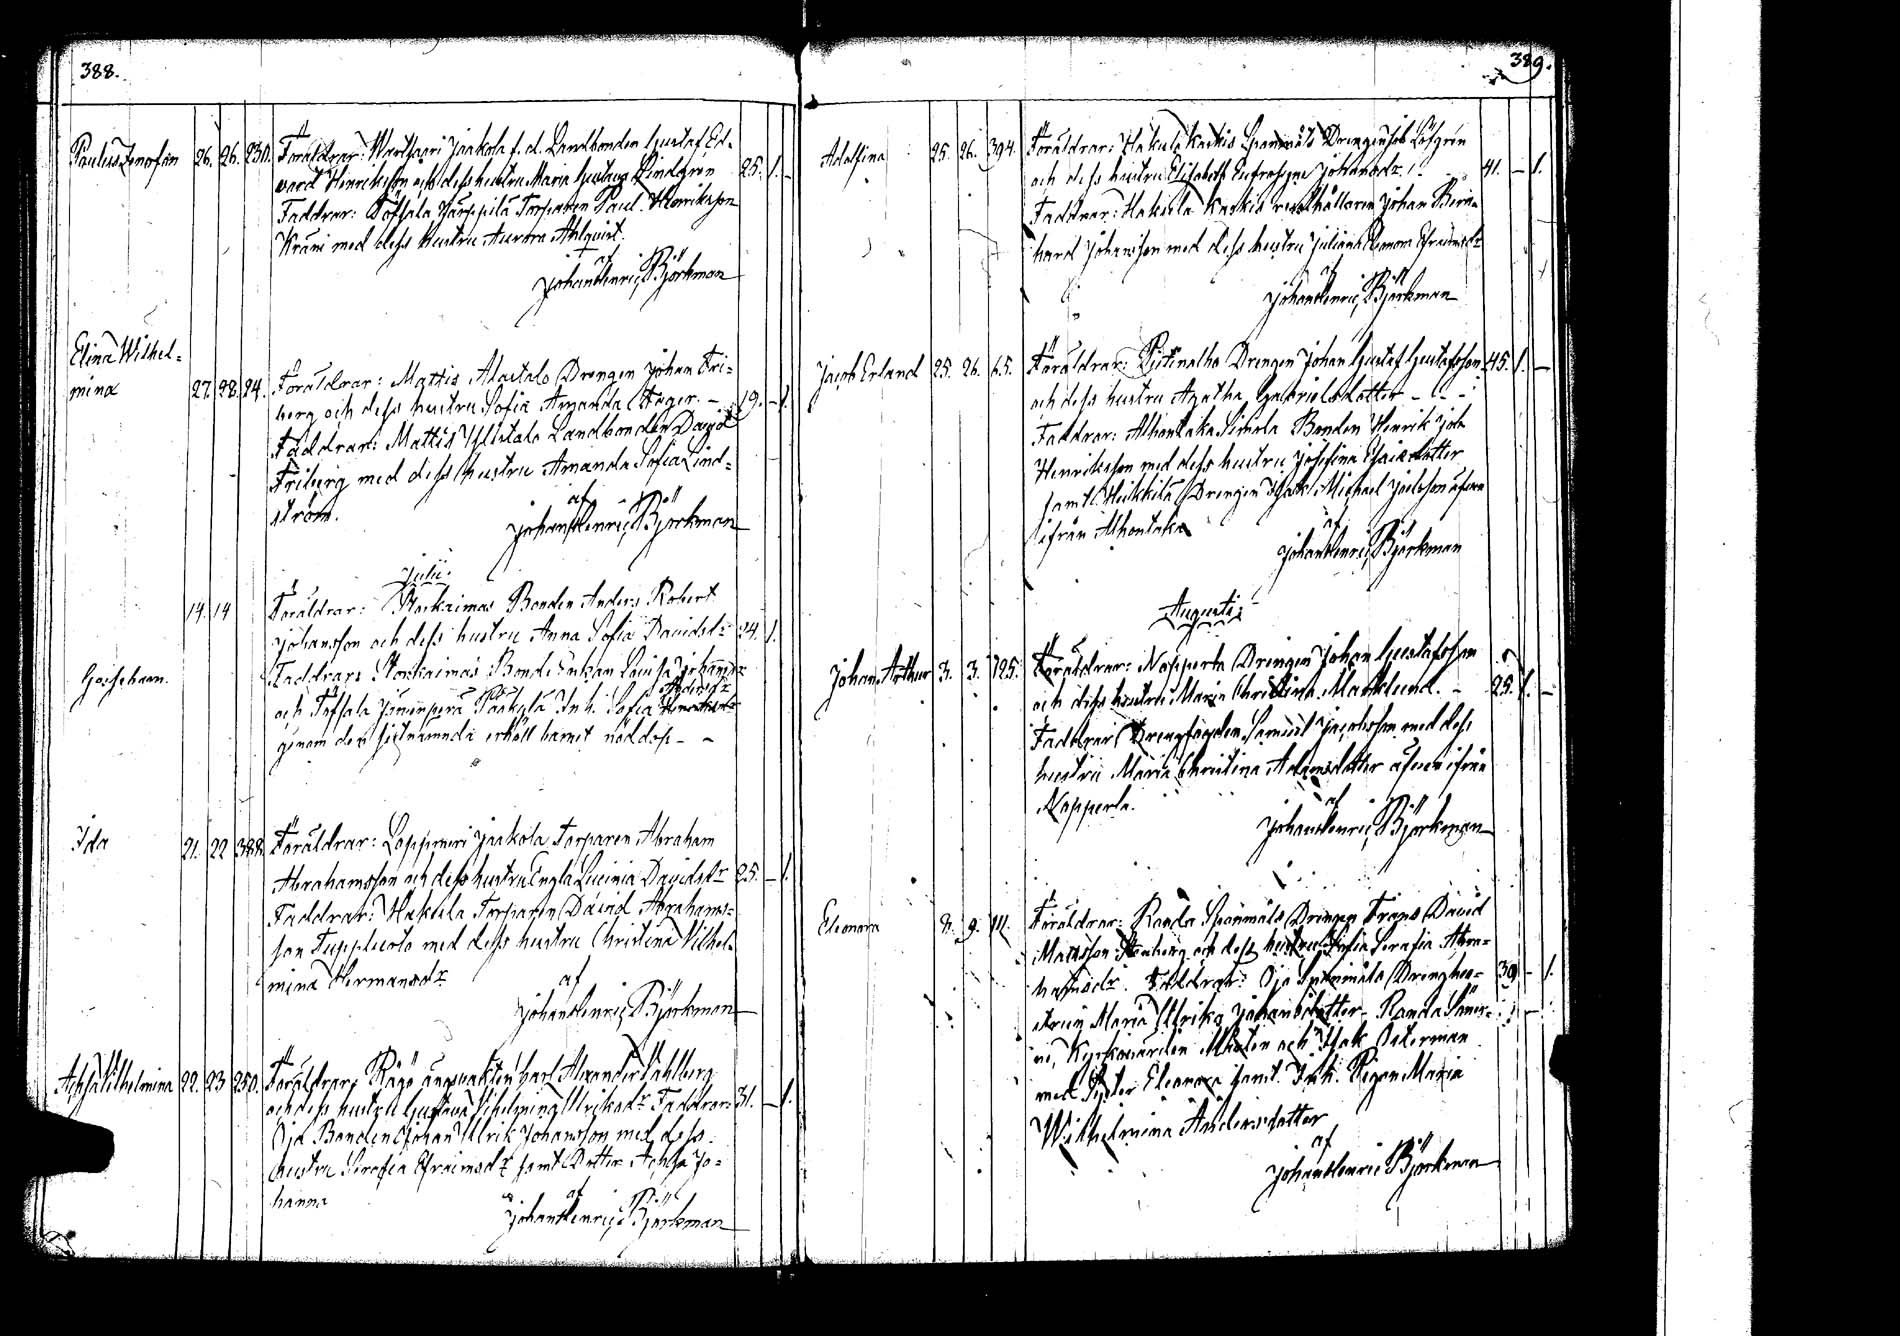 388.
Paulus Zenofon 26. 26. 230. Föräldrar: Wartsaari Jaakola f. d. Landbonden Gustaf Ed-
vard Henriksson och dess hustru Maria Gustava Lindgren 25. 1. -
Faddrar: Töfsala Järppilä Torparen Paul Henriksson
Kräni med dess hustru Aurora Ahlqvist.
af
Johan Henric Björkman
Elina Wilhel-
mina 27. 28. 24. Föräldrar: Mattis Alastalo Drengen Johan Fri-
berg och dess hustru Sofia Amanda Häger. - 19. - 1.
Faddrar: Mattis Ylistalo Landbonden David
Friberg med dess hustru Amanda Sofia Lind-
ström.
af
Johan Henric Björkman
Julii.
14. 14 Föräldrar: Storkaimas Bonden Anders Robert
Johansson och dess hustru Anna Sofia Davidsdr 24. 1.
Gossebarn. Faddrar: Storkaimas Bonde Enkan Lovisa Johansdr
Andersdr
och Töfsala Jänenperä Pääkylä Inh. Sofia
genom den sistnämnda erhöll barnet nöddop - -
Ida 21. 22 388. Föräldrar: Loppmeri Jaakola Torparen Abraham
Abrahamsson och dess hustru Engla Lucinia Davidsdr 25. - 1.
Faddrar: Hakula Torparen David Abrahams-
son Tuppluoto med dess hustru Christina Vilhel-
mina Hermansdr
af
Johan Henric Björkman
Achsa Vilhelmina 22. 23 250. Föräldrar: Rågö ångvakten Karl Alexander Dahlberg
och dess hustru Gustava Vilhelmina Ulriksdr Faddrar: 31. - 1.
Oja Bonden Johan Ulrik Johansson med dess
hustru Serafia Efraimsdr samt Dotter Achsa Jo-
hanna
af
Johan Henric Björkman
389.
Adolfina 25. 26. 394. Föräldrar: Hakula Kaskis Spanmåls Drengen Job Löfgrén
och dess hustru Elisabeth Eufrosyne Johansdr 41. - 1.
Faddrar: Hakula Kaskis rusthållaren Johan Bern-
hard Johansson med dess hustru Juliana Eleonora Efraimsdr
af
Johan Henric Björkman
Jacob Erland 25. 26. 65. Föräldrar: Pistinalho Drengen Johan Gustaf Gustafsson 45. 1. -
och dess hustru Agatha Gabrielsdotter - - -
Faddrar: Alhontaka Simola Bonden Henrik Joh.
Henriksson med dess hustru Josefina Esaiedotter
samt Heikkilä Drengen Isak Michael Jacobsson äfven
ifrån Alhontaka
af
Johan Henric Björkman
Augusti:
Johan Arthur 3. 3. 125. Föräldrar: Nopperla Drengen Johan Gustafsson
och dess hustru Maria Christina Marklund. - 25. 1. -
Faddrar: Drengfogden Samuel Jacobsson med dess
hustru Maria Christina Adamsdotter äfven ifrån
Nopperla.
af
Johan Henric Björkman
Eleonora 8. 9. 111. Föräldrar: Randa Spanmåls Drengen Frans David
Matsson Stenberg och dess hustru Sofia Serafia Abra-
hamsdr. Faddrar: Oja Spanmåls Drenghu-
strun Maria Ulrika Johansdotter - Randa 39 - 1.
Kyrkovärden Mårten och Isak Österman
med Syster Eleonora samt Inh. Pigan Maria
Wilhelmina Andersdotter
af
Johan Henric Björkman